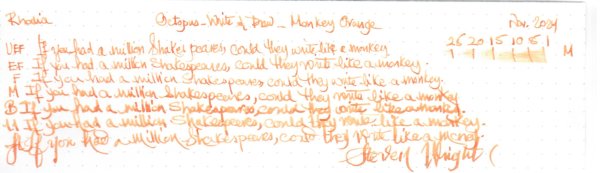 Rhodia Octopus - Write & Draw - Monkey Orange Nov. 2024
UEF If you had a million Shakespeares, could they write like a monkey. 25 20 15 10 5 1
EF If you had a million Shakespeares, could they write like a monkey. M
F If you had a million Shakespeares, could they write like a monkey.
M If you had a million Shakespeares, could they write like a monkey
B If you had a million Shakespeares, could they write like a monkey.
If you had a million Shakespeares, could they write like a monkey.
If you had a million Shakespeares, could they write like a monkey.
Steven Wright